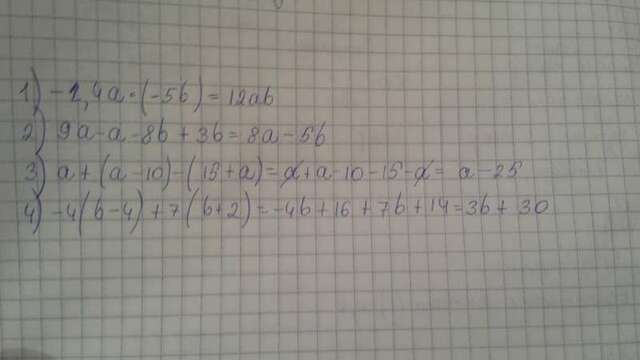 1) -2,4a·(-5b) = 12ab
2) 9a-a-8b+3b = 8a-5b
3) a+(a-10)-(15+a) = a+a-10-15-a = a-25
4) -4(b-4)+7(b+2) = -4b+16+7b+14 = 3b+30